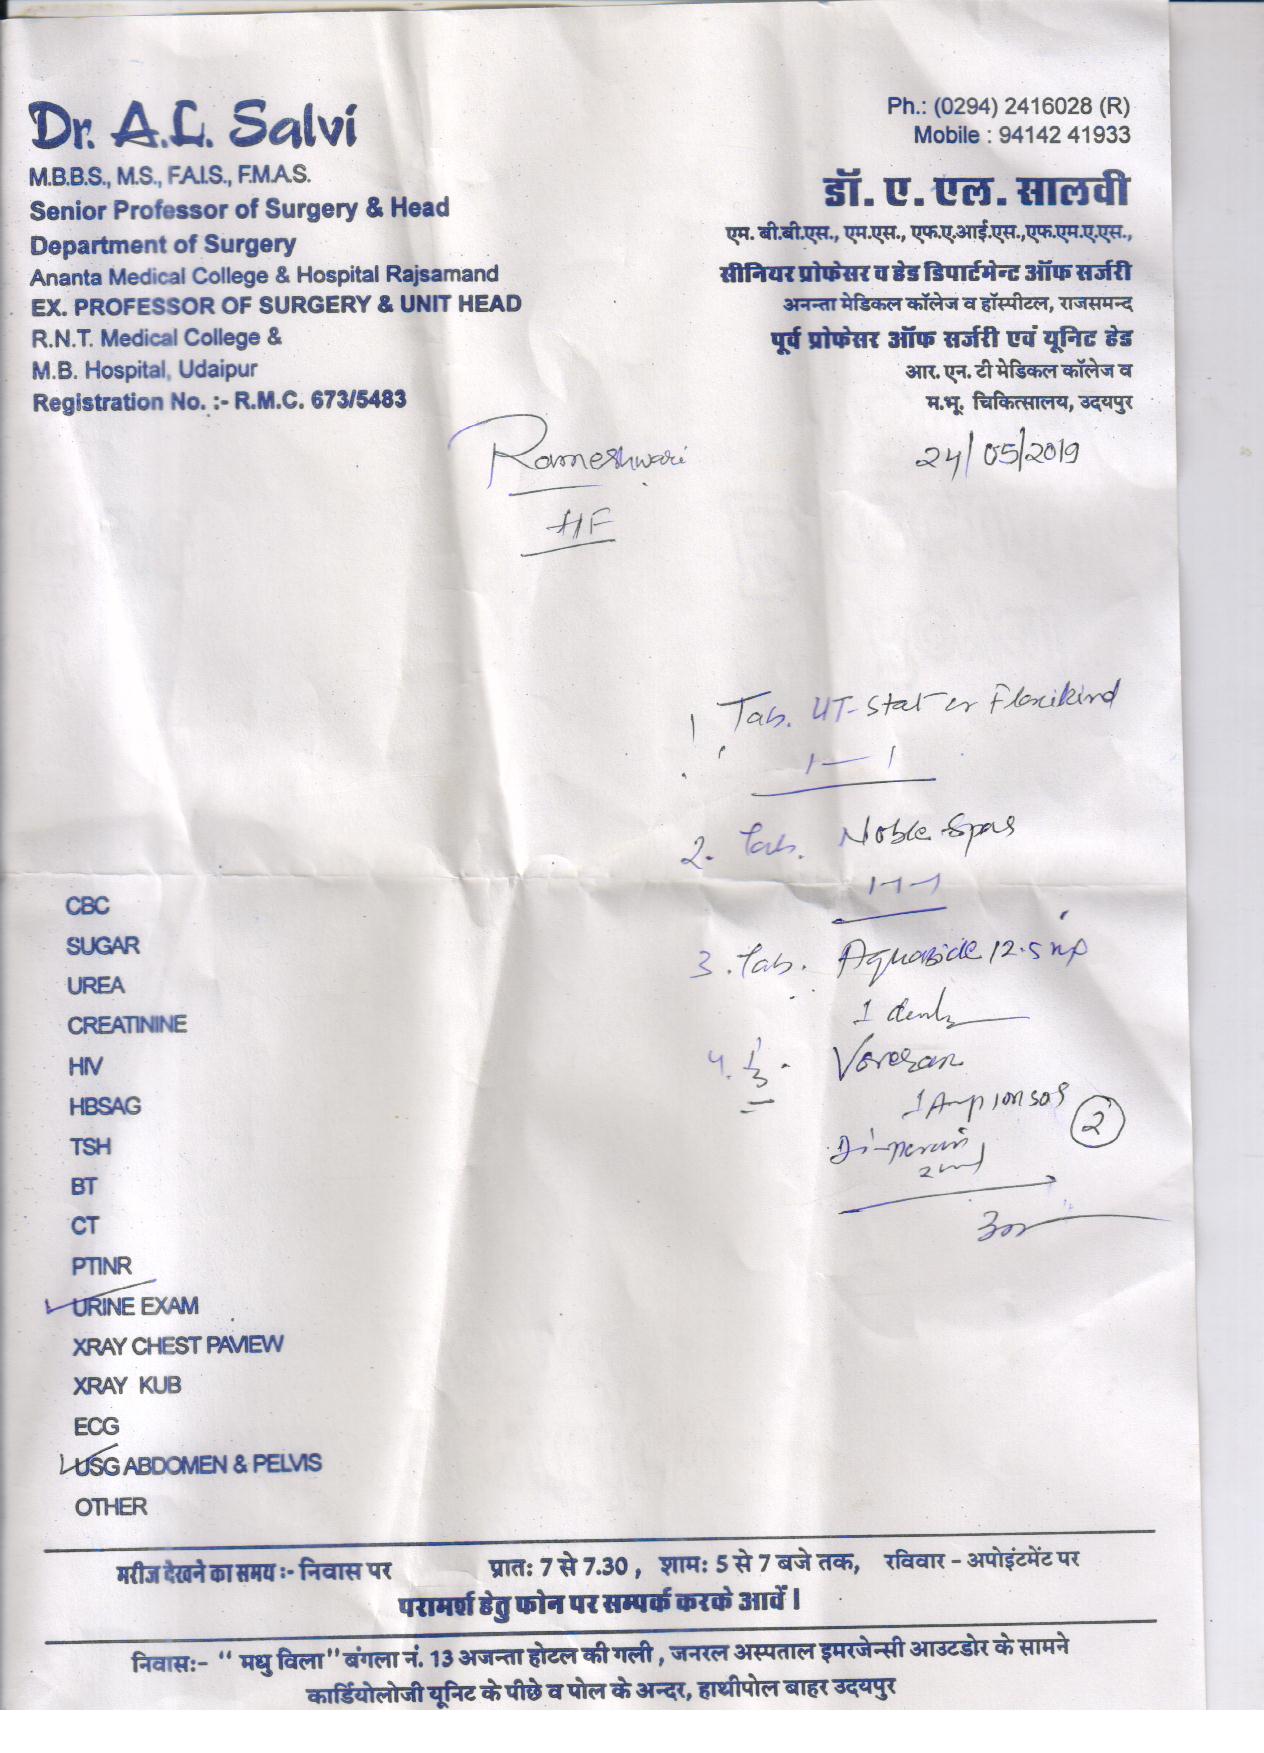 Dr. A.L. Salvi
M.B.B.S., M.S., F.A.I.S., F.M.A.S.
Senior Professor of Surgery & Head
Department of Surgery
Ananta Medical College & Hospital Rajsamand
EX. PROFESSOR OF SURGERY & UNIT HEAD
R.N.T. Medical College &
M.B. Hospital, Udaipur
Registration No. :- R.M.C. 673/5483
Ph.: (0294) 2416028 (R)
Mobile : 94142 41933
डॉ. ए. एल. सालवी
एम. बी.बी.एस., एम.एस., एफ.ए.आई.एस.,एफ.एम.ए.एस.,
सीनियर प्रोफेसर व हेड डिपार्टमेन्ट ऑफ सर्जरी
अनन्ता मेडिकल कॉलेज व हॉस्पीटल, राजसमन्द
पूर्व प्रोफेसर ऑफ सर्जरी एवं यूनिट हेड
आर. एन. टी मेडिकल कॉलेज व
म.भू. चिकित्सालय, उदयपुर
Rameshwari
24/05/2019
HF
1 Tab. UT-Stat or Floxikind
1 — 1
2. Tab. Noble Spas
1-1-1
3. Tab. Aquazide 12.5
1
4. Voveran
1 Amp
2
CBC
SUGAR
UREA
CREATININE
HIV
HBSAG
TSH
BT
CT
PTINR
URINE EXAM
XRAY CHEST PAVIEW
XRAY KUB
ECG
USG ABDOMEN & PELVIS
OTHER
मरीज देखने का समय :- निवास पर प्रातः 7 से 7.30 , शामः 5 से 7 बजे तक, रविवार - अपोइंटमेंट पर
परामर्श हेतु फोन पर सम्पर्क करके आवें ।
निवासः- “ मधु विला” बंगला नं. 13 अजन्ता होटल की गली , जनरल अस्पताल इमरजेन्सी आउटडोर के सामने
कार्डियोलोजी यूनिट के पीछे व पोल के अन्दर, हाथीपोल बाहर उदयपुर